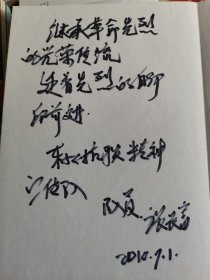 继承革命先烈
的光荣传统
迈着先烈的脚
印前进.
东北抗联精神
宣传队
队员
2010.9.1.